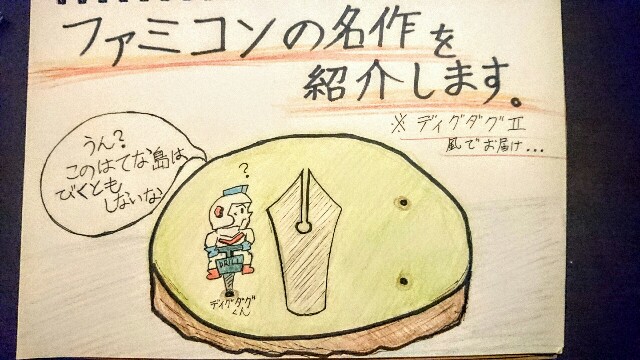 ファミコンの名作を
紹介します。
※ ディグダグⅡ
風でお届け...
うん?
このはてな島は
びくとも
しないな
?
DRILL
ディグダグ
くん